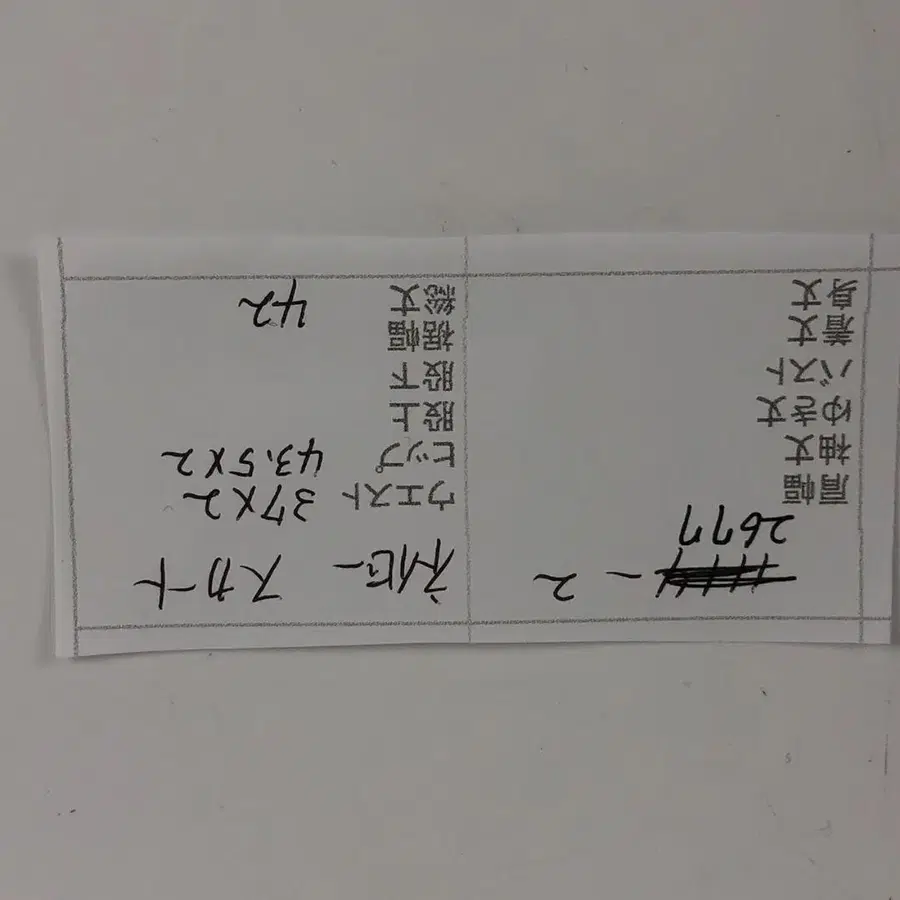 - 2
2677
肩幅
袖丈
ゆき丈
バスト
着丈
身丈
ネイビー スカート
ウエスト 37×2
ヒップ 43.5×2
股上
股下
裾幅
総丈 42